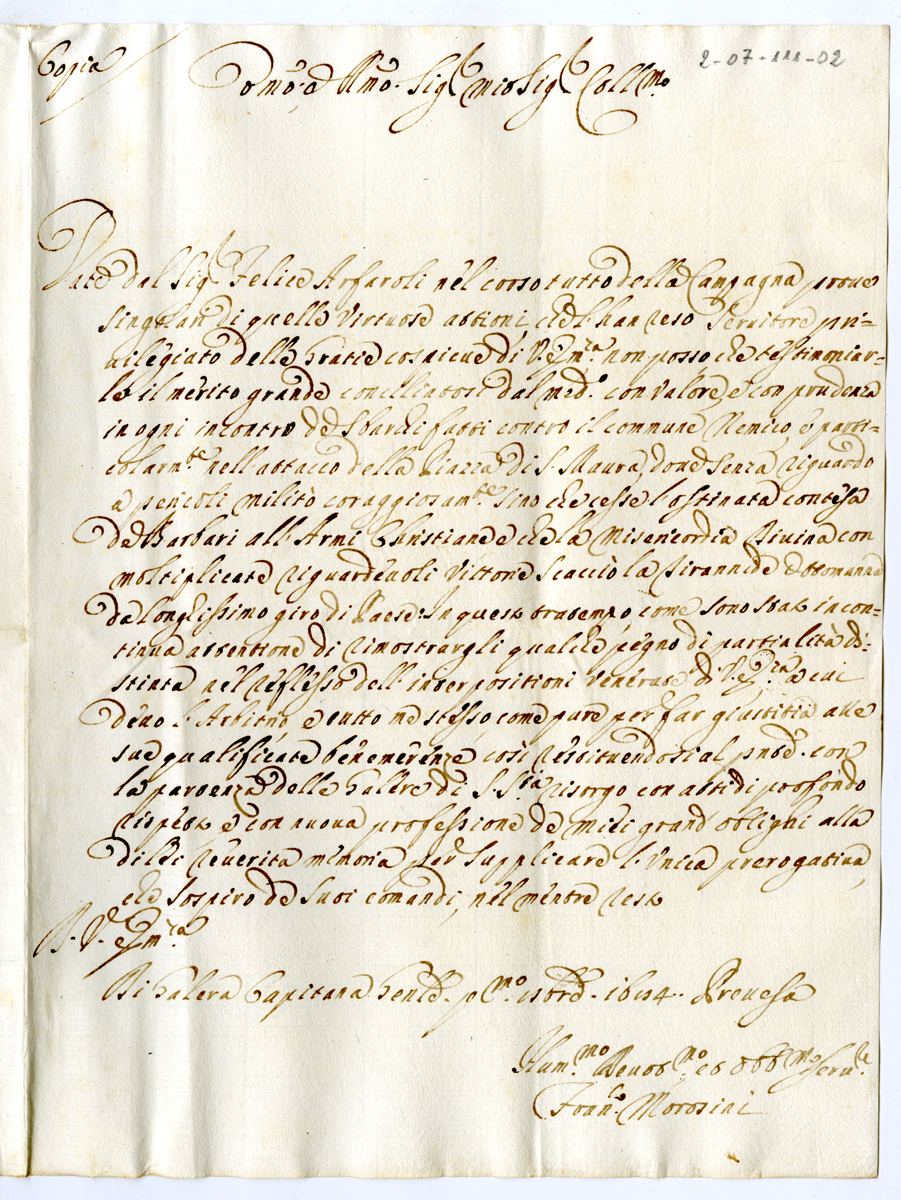 Copia
2-07-111-02
Emo. e Rmo. Sigr. mio Sigr. Collmo.
Date dal Sigr. Felice Arfaroli nel corso tutto della Campagna prove
singolari di quelle virtuose attioni che l'han reso servitore pri=
vilegiato delle gratie cospicue di V. Emza. non posso che testimoniar=
le il merito grande conciliatosi dal medo. con valore, e con prudenza
in ogni incontro de Sbarchi fatti contro il commune Nemico, e parti=
colarmte. nell'attacco della Piazza di S. Maura, dove senza riguardo
a pericoli militò coraggiosamte. sino che cesse l'ostinata contesa
de Barbari all'Armi Christiane e che la Misericordia Divina con
moltiplicate riguardevoli Vittorie scacciò la Tirannide Ottomanna
da longhissimo giro di Paese. In questo tratempo, come sono stato in con=
tinua attentione di rimostrargli qualche pegno di partialità di=
stinta nel riflesso dell'interpositioni venerate di V. Emza. a cui
devo l'Arbitrio e tutto me stesso, come pure per far giustitia alle
sue qualificate benemerenze, così restituendosi al pnte. con
la partenza delle Galere di S. Stà. risorgo con atti di profondo
rispetto e con nuova professione de miei grand'oblighi alla
di lei riverita memoria per supplicare l'unica prerogativa,
che sospiro de suoi comandi, nel mentre resto
D. V. Emza.
Di Galera Capitana Genle. po. 9bre. 1684. Prevesa
Hummo. Devotmo. et Obbmo. Servre.
Franco. Morosini